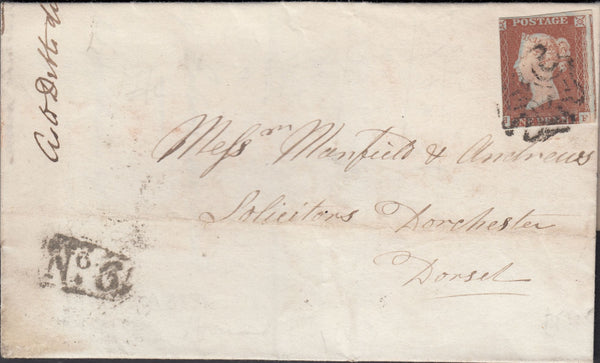 POSTAGE
ONE PENNY
Messrs Manfield & Andrews
Solicitors Dorchester
Dorset
No. 6